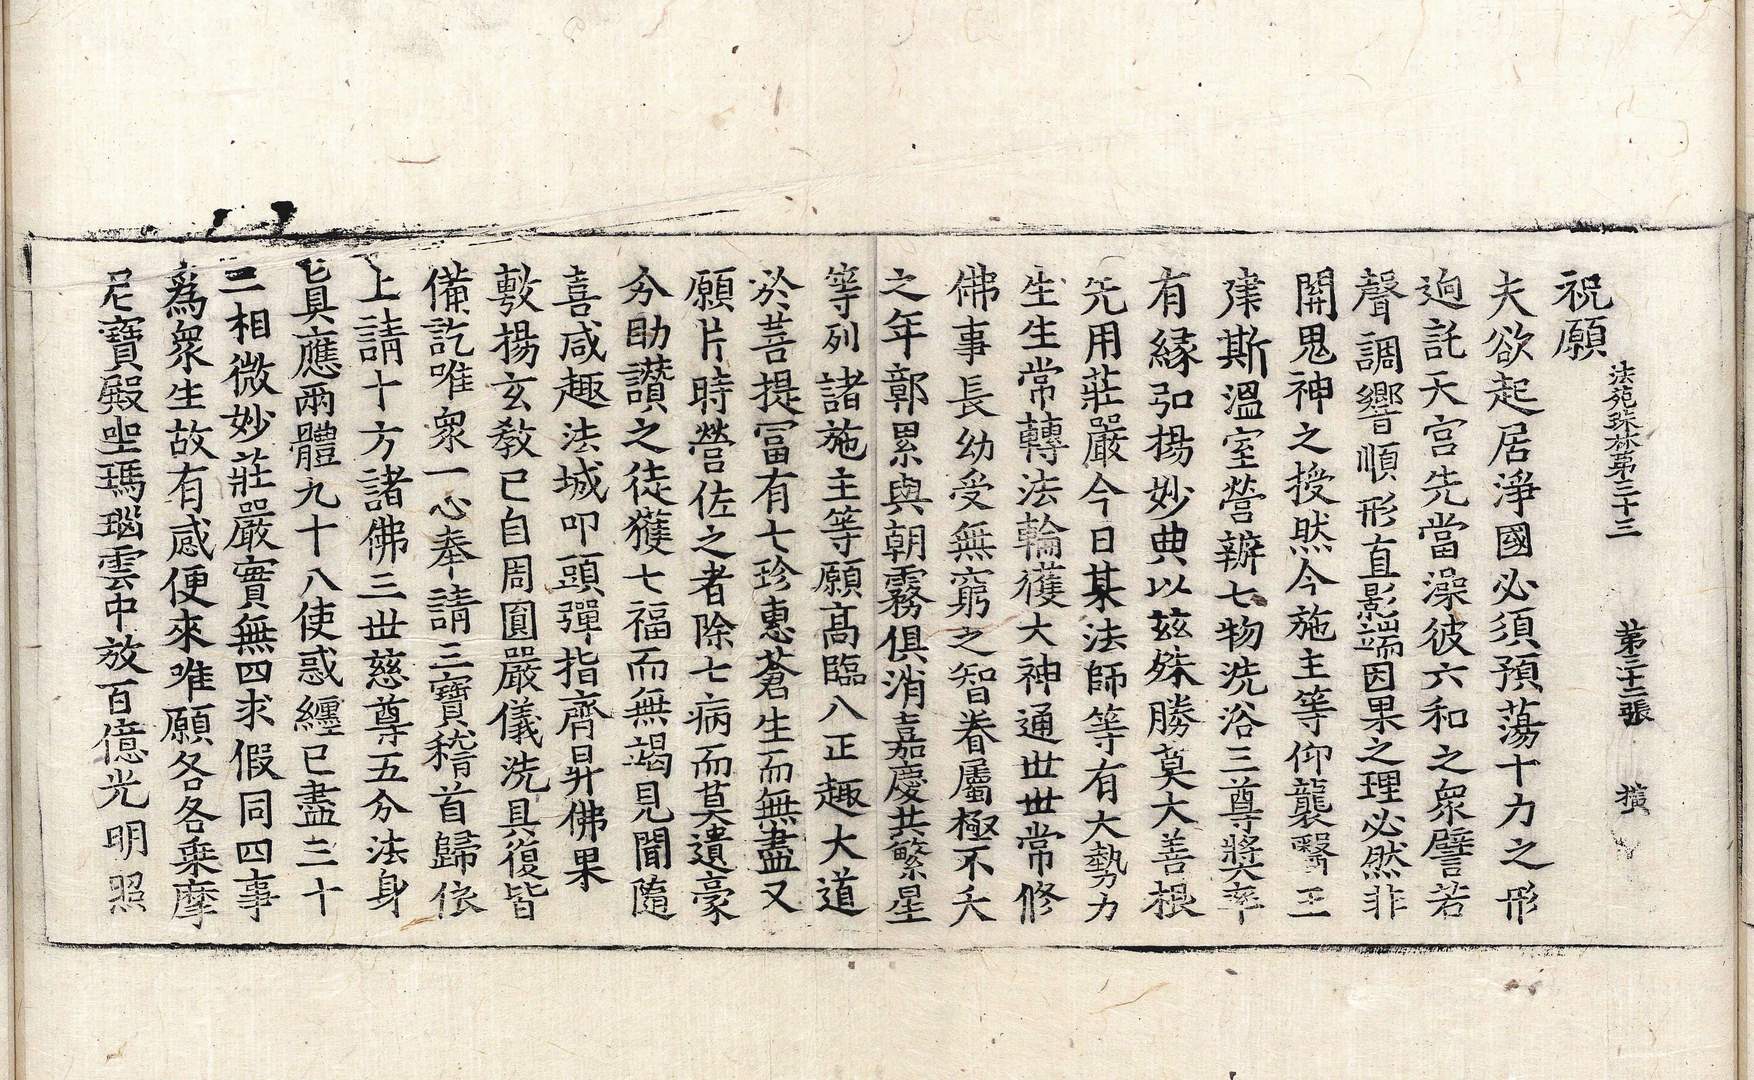 法苑珠林第三十三 第三十二張 橫
祝願
夫欲起居淨國必須預蕩十力之形
逈託天宮先當澡彼六和之衆譬若
聲調響順形直影端因果之理必然非
關鬼神之授然今施主等仰襲醫王
肅斯溫室營辦七物洗浴三尊奬率
有緣弘揚妙典以玆殊勝莫大善根
先用莊嚴今日某法師等有大勢力
生生常轉法輪獲大神通世世常修
佛事長幼受無窮之智眷屬極不夭
之年鄣累與朝霧俱消嘉慶共繁星
等列諸施主等願高臨八正趣大道
於菩提冨有七珍惠蒼生而無盡又
願片時營佐之者除七病而莫遺豪
分助讚之徒獲七福而無竭見聞隨
喜咸趣法城叩頭彈指齊昇佛果
敷揚玄教已自周圓嚴儀洗具復皆
備訖唯衆一心奉請三寶稽首歸依
上請十方諸佛三世慈尊五分法身
眞應兩體九十八使惑纏已盡三十
二相微妙莊嚴實無四求假同四事
爲衆生故有感便來唯願各各乗摩
尼寶殿坐瑪瑙雲中放百億光明照